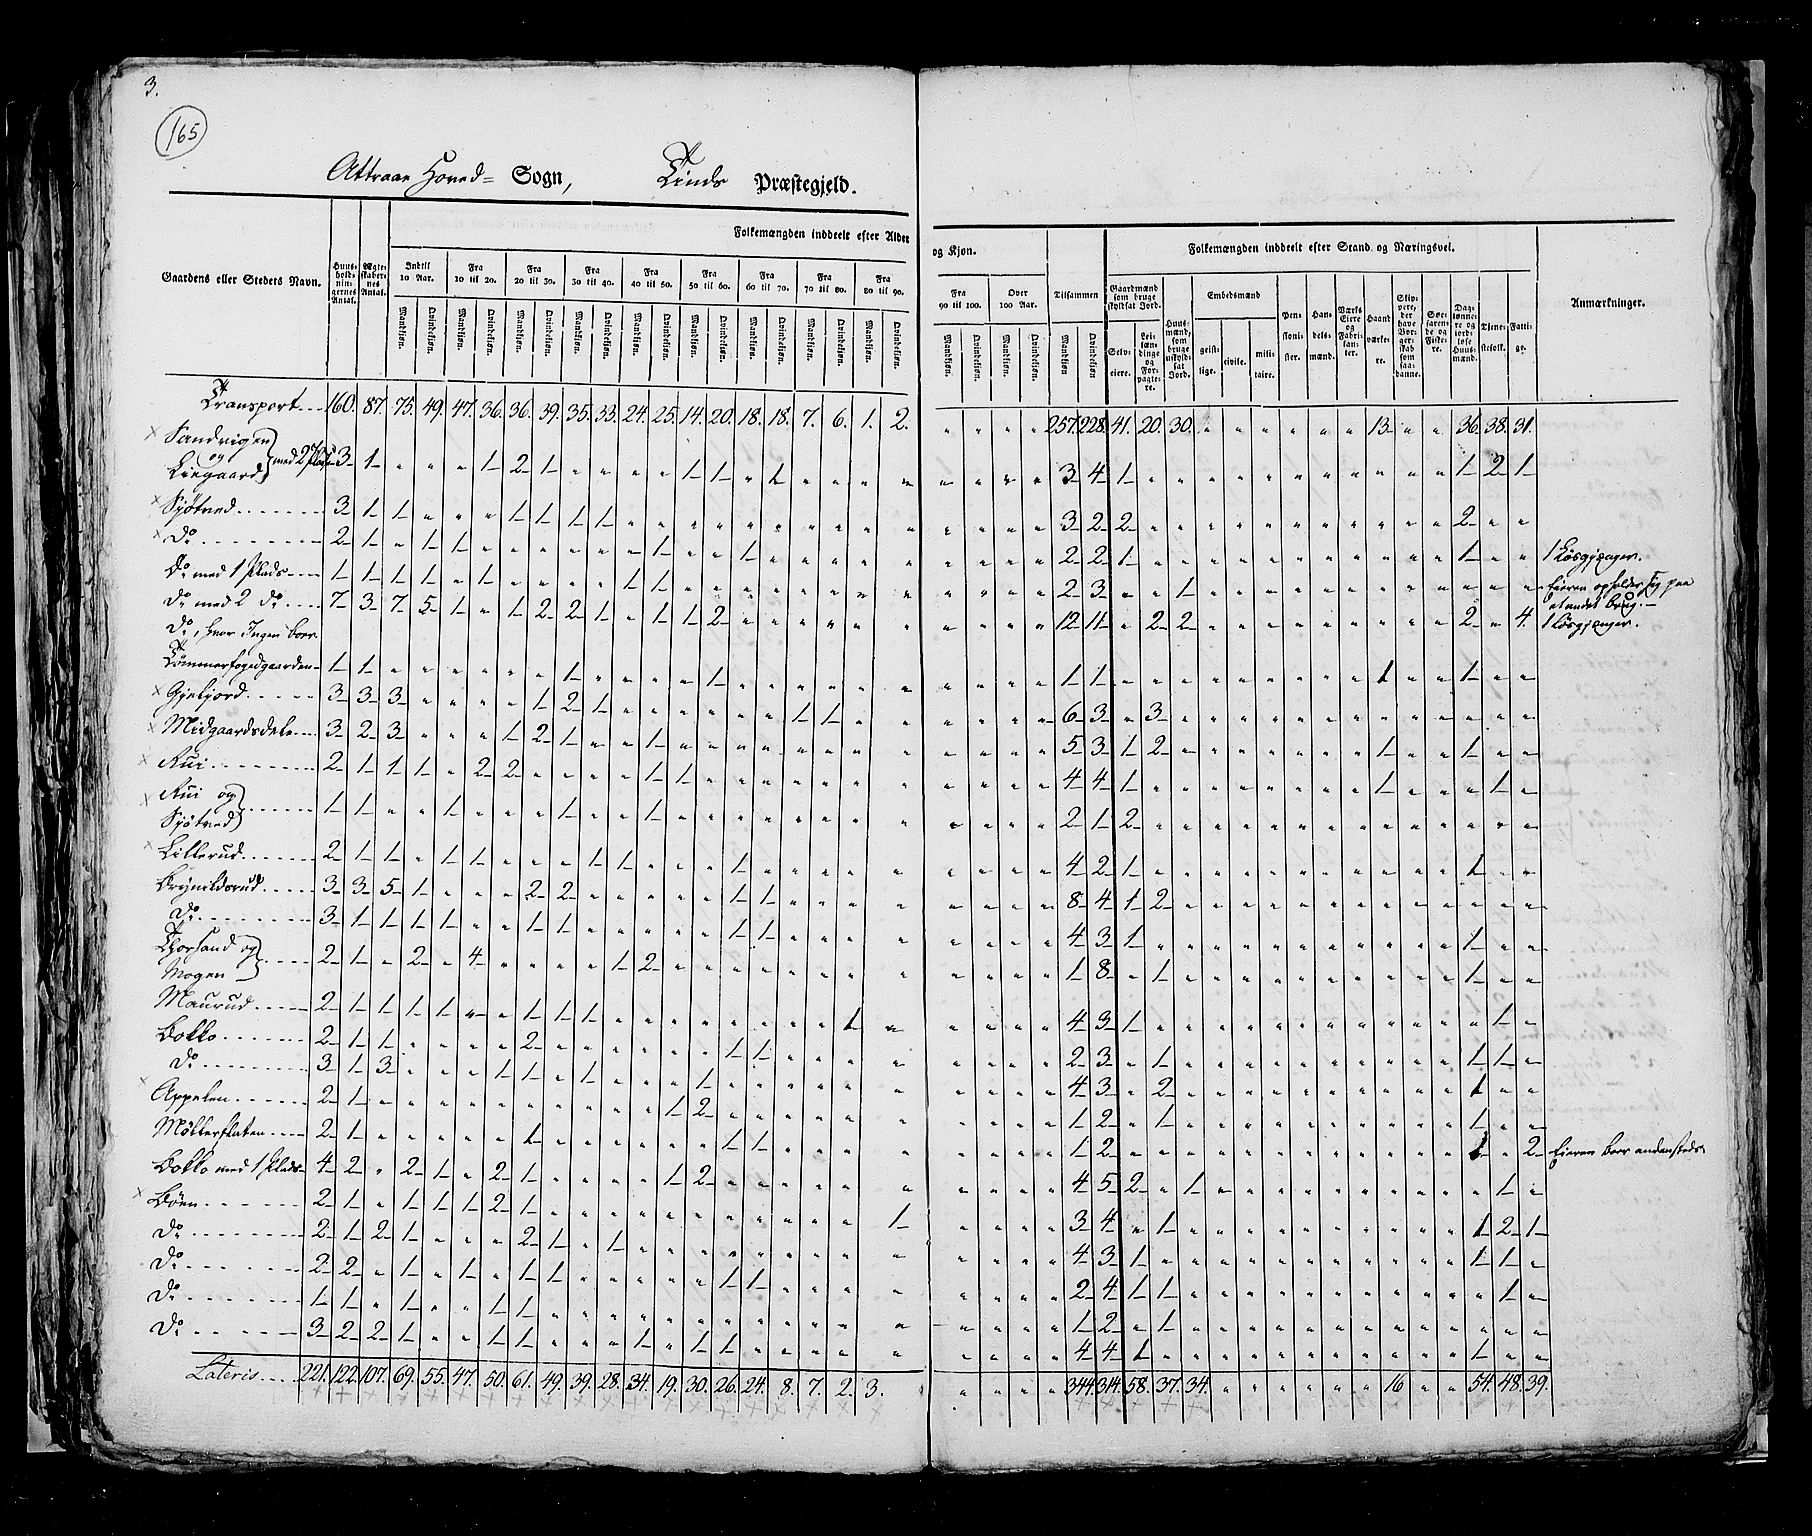 3.
165
Attraae Hoved= Sogn, Tinds Præstegjeld.
Gaardens eller Stedets Navn.
Huus-holdningernes Antal.
Ægteskabernes Antal.
Folkemængden inddeelt efter Alder og Kjøn.
Indtil 10 Aar. Fra 10 til 20. Fra 20 til 30. Fra 30 til 40. Fra 40 til 50. Fra 50 til 60. Fra 60 til 70. Fra 70 til 80. Fra 80 til 90. Fra 90 til 100. Over 100 Aar. Tilsammen
Mandkjøn. Qvindekjøn.
Folkemængden inddeelt efter Stand og Næringsvei.
Gaardmænd som bruge skyldsat Jord.
Selveiere. Leilændinge og Forpagtere.
Huusmænd, som bruge uskyldsat Jord.
Embedsmænd
geistlige. civile. militaire.
Pensionister. Handelsmænd. Værks Eiere og Fabrikanter. Haandværkere. Skippere, der have Borgerskab som saadanne. Søefarende og Fiskere. Dagslønnere og jordløse Huusmænd. Tjenestefolk. Fattige.
Anmærkninger.
Transport 160. 87. 75. 49. 47. 36. 36. 39. 35. 33. 24. 25. 14. 20. 18. 18. 7. 6. 1. 2. " " " " 257. 228. 41. 20. 30. " " " " " " 13 " " 36. 38. 31.
Sandvigen og Liegaard med 2 Pladse 3 1 " " " 1 2 1 " " " " 1 1 " 1 " " " " " " " " 3 4 1 " " " " " " " " " " " 1 2 1
Sjøtved 3 1 1 " " " 1 1 1 1 " " " " " " " " " " " " " " 3 2 2 " " " " " " " " " " " 2 " "
Do 2 1 " 1 1 " " " " " " 1 " " 1 " " " " " " " " " 2 2 1 " " " " " " " " " " " 1 " " 1 Løsgjænger.
Do med 1 Plads 1 1 1 1 " 1 " " " " 1 1 " " " " " " " " " " " " 2 3 " " 1 " " " " " " " " " " " " Eieren opholder sig paa et andet Brug.
Do med 2 do 7 3 7 5 1 " 1 2 2 1 " 1 1 2 " " " " " " " " " " 12 11 " 2 2 " " " " " " " " " 2 " 4. 1 Løsgjænger.
Do, hvor Ingen boer
Tømmerfogedgaarden 1 1 " " " " " " 1 " " " " 1 " " " " " " " " " " 1 1 " " " " " " " " " 1 " " 1 " "
Gjefjord 3 3 3 " " " " 1 2 1 " " " " " " 1 1 " " " " " " 6 3 " 3 " " " " " " " " " " " " "
Midgaardsdale 3 2 3 " " " 1 2 1 " " 1 " " " " " " " " " " " " 5 3 1 2 " " " " " " " 1 " " 1 " "
Rui 2 1 1 1 " 2 2 " " " " 1 1 " " " " " " " " " " " 4 4 1 " " " " " " " " 1 " " " 1 "
Rui og Sjøtved 1 1 " " 1 " " " 1 " " 1 " " " " " " " " " " " " 2 1 2 " " " " " " " " " " " " " "
Lillerud 2 1 1 " 1 1 " " " 1 1 " " " 1 " " " " " " " " " 4 2 1 " " " " " " " " " " " 1 " "
Brynildsrud 3 3 5 1 " " " 2 2 " " " " " 1 1 " " " " " " " " 8 4 1 2 " " " " " " " " " " " " "
Do 3 1 1 1 1 " " 1 1 " " " " " 1 1 " " " " " " " " 4 3 1 " " " " " " " " " " " 1 " "
Thorsand og Mogen 2 1 " 2 " 4 " " " " 1 2 " " " " " " " " " " " " 1 8 " 1 " " " " " " " " " " 1 " "
Maurud 2 1 1 1 1 " " 1 1 1 " " " " " " " " 1 " " " " " 4 3 1 " " " " " " " " " " " " 1 "
Bokko 2 1 1 " " " " 2 " " " " " " 1 1 " " " " " " " " 2 3 " 1 " " " " " " " " " " 1 1 "
Do 3 1 3 " " " 1 1 " 1 " " " 1 " " " " " " " " " " 4 3 " 2 " " " " " " " " " " 1 " "
Appelen 2 1 " " " " " " " " " " 1 2 " " " " " " " " " " 1 2 " 1 " " " " " " " " " " 1 " "
Møllerflaten 2 1 " " " " " 1 " " " " " " 1 1 " " " " " " " " 1 2 " " " " " " " " " " " " 1 " 2 Eieren boer andensteds.
Bokko med 1 Plads 4 2 " 2 1 " 2 1 " " " " 1 2 " " " " " " " " " " 4 5 2 " 1 " " " " " " " " " " 1 "
Böen 2 1 " 1 1 1 2 1 " " " " " " " " " " " 1 " " " " 3 4 " 1 " " " " " " " " " " 1 2 1
Do 2 1 2 1 " " " 2 1 " 1 " " " " " " " " " " " " " 4 3 1 " " " " " " " " " " " 1 1 "
Do 2 2 " 1 " 1 " 1 1 " " " " " 1 1 " " " " " " " " 2 4 1 1 " " " " " " " " " " " 1 "
Do 1 1 " 1 " " 1 1 " " " " " " " " " " " " " " " " 1 2 " 1 " " " " " " " " " " " " "
Do 3 2 2 1 " " 1 1 " " " 1 " 1 1 " " " " " " " " " 4 4 1 " " " " " " " " " " " 1 " "
Lateris 221. 122. 107. 69. 55. 47. 50. 61. 49. 39. 28. 34. 19. 30. 26. 24. 8. 7. 2. 3. " " " " 344. 314. 58. 37. 34. " " " " " " 16 " " 54. 48. 39.